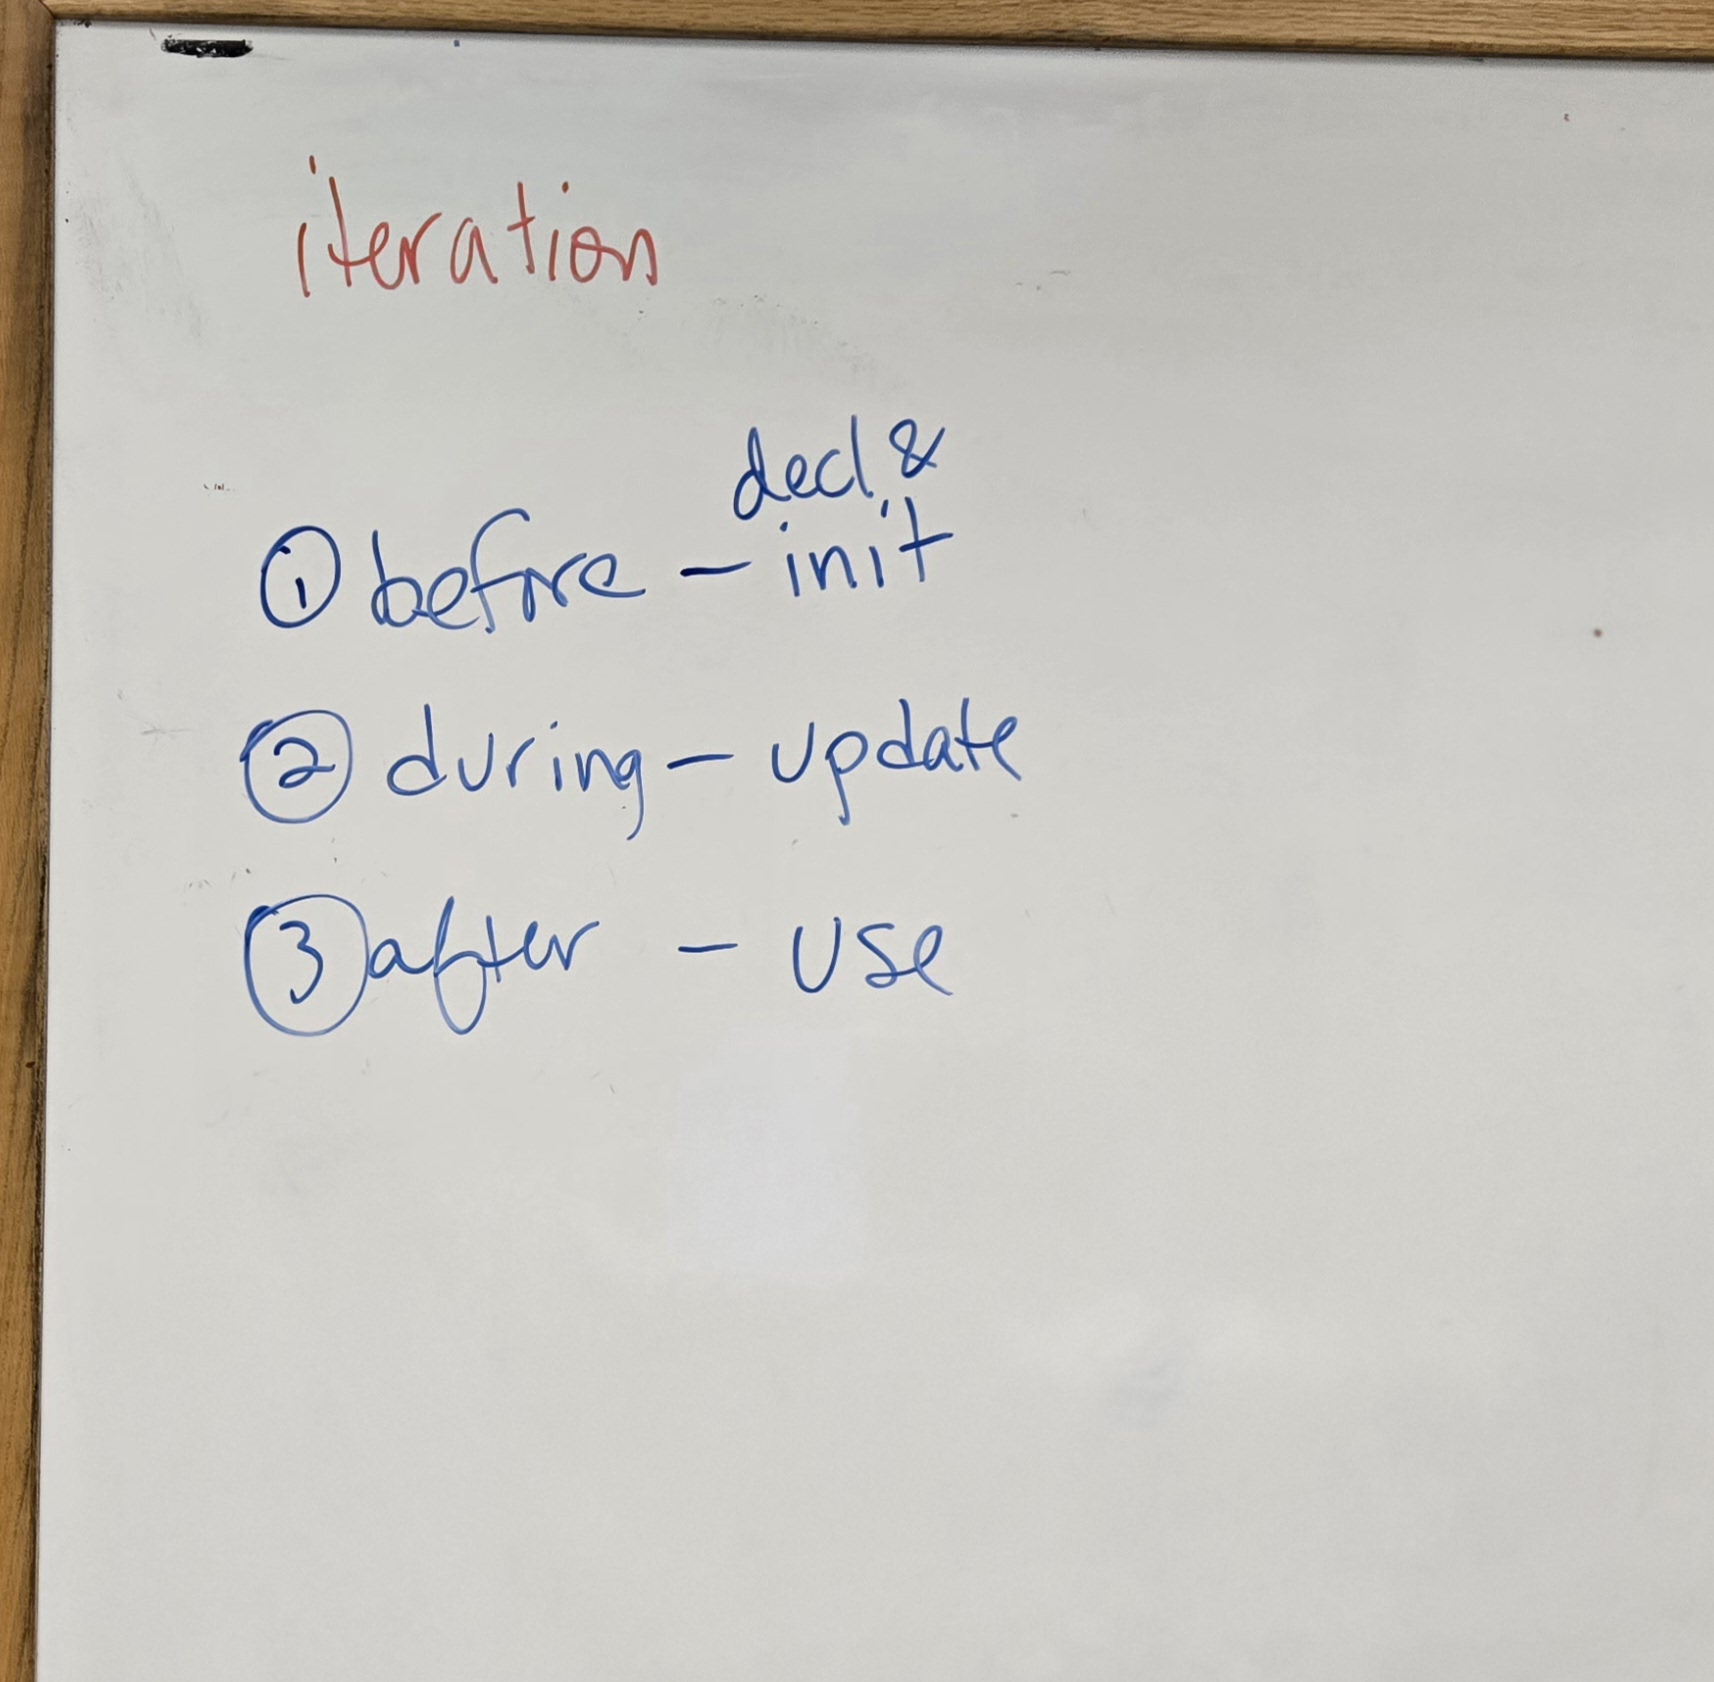 iteration
decl &
① before – init
② during – update
③ after – use